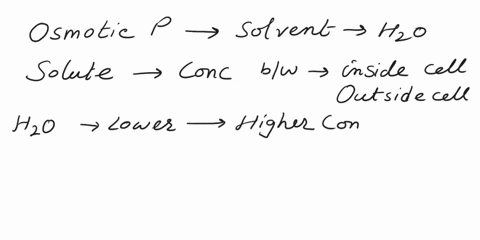 Osmotic P → Solvent → H2O
Solute → Conc b/w → inside cell
Outside cell
H2O → Lower → Higher Con